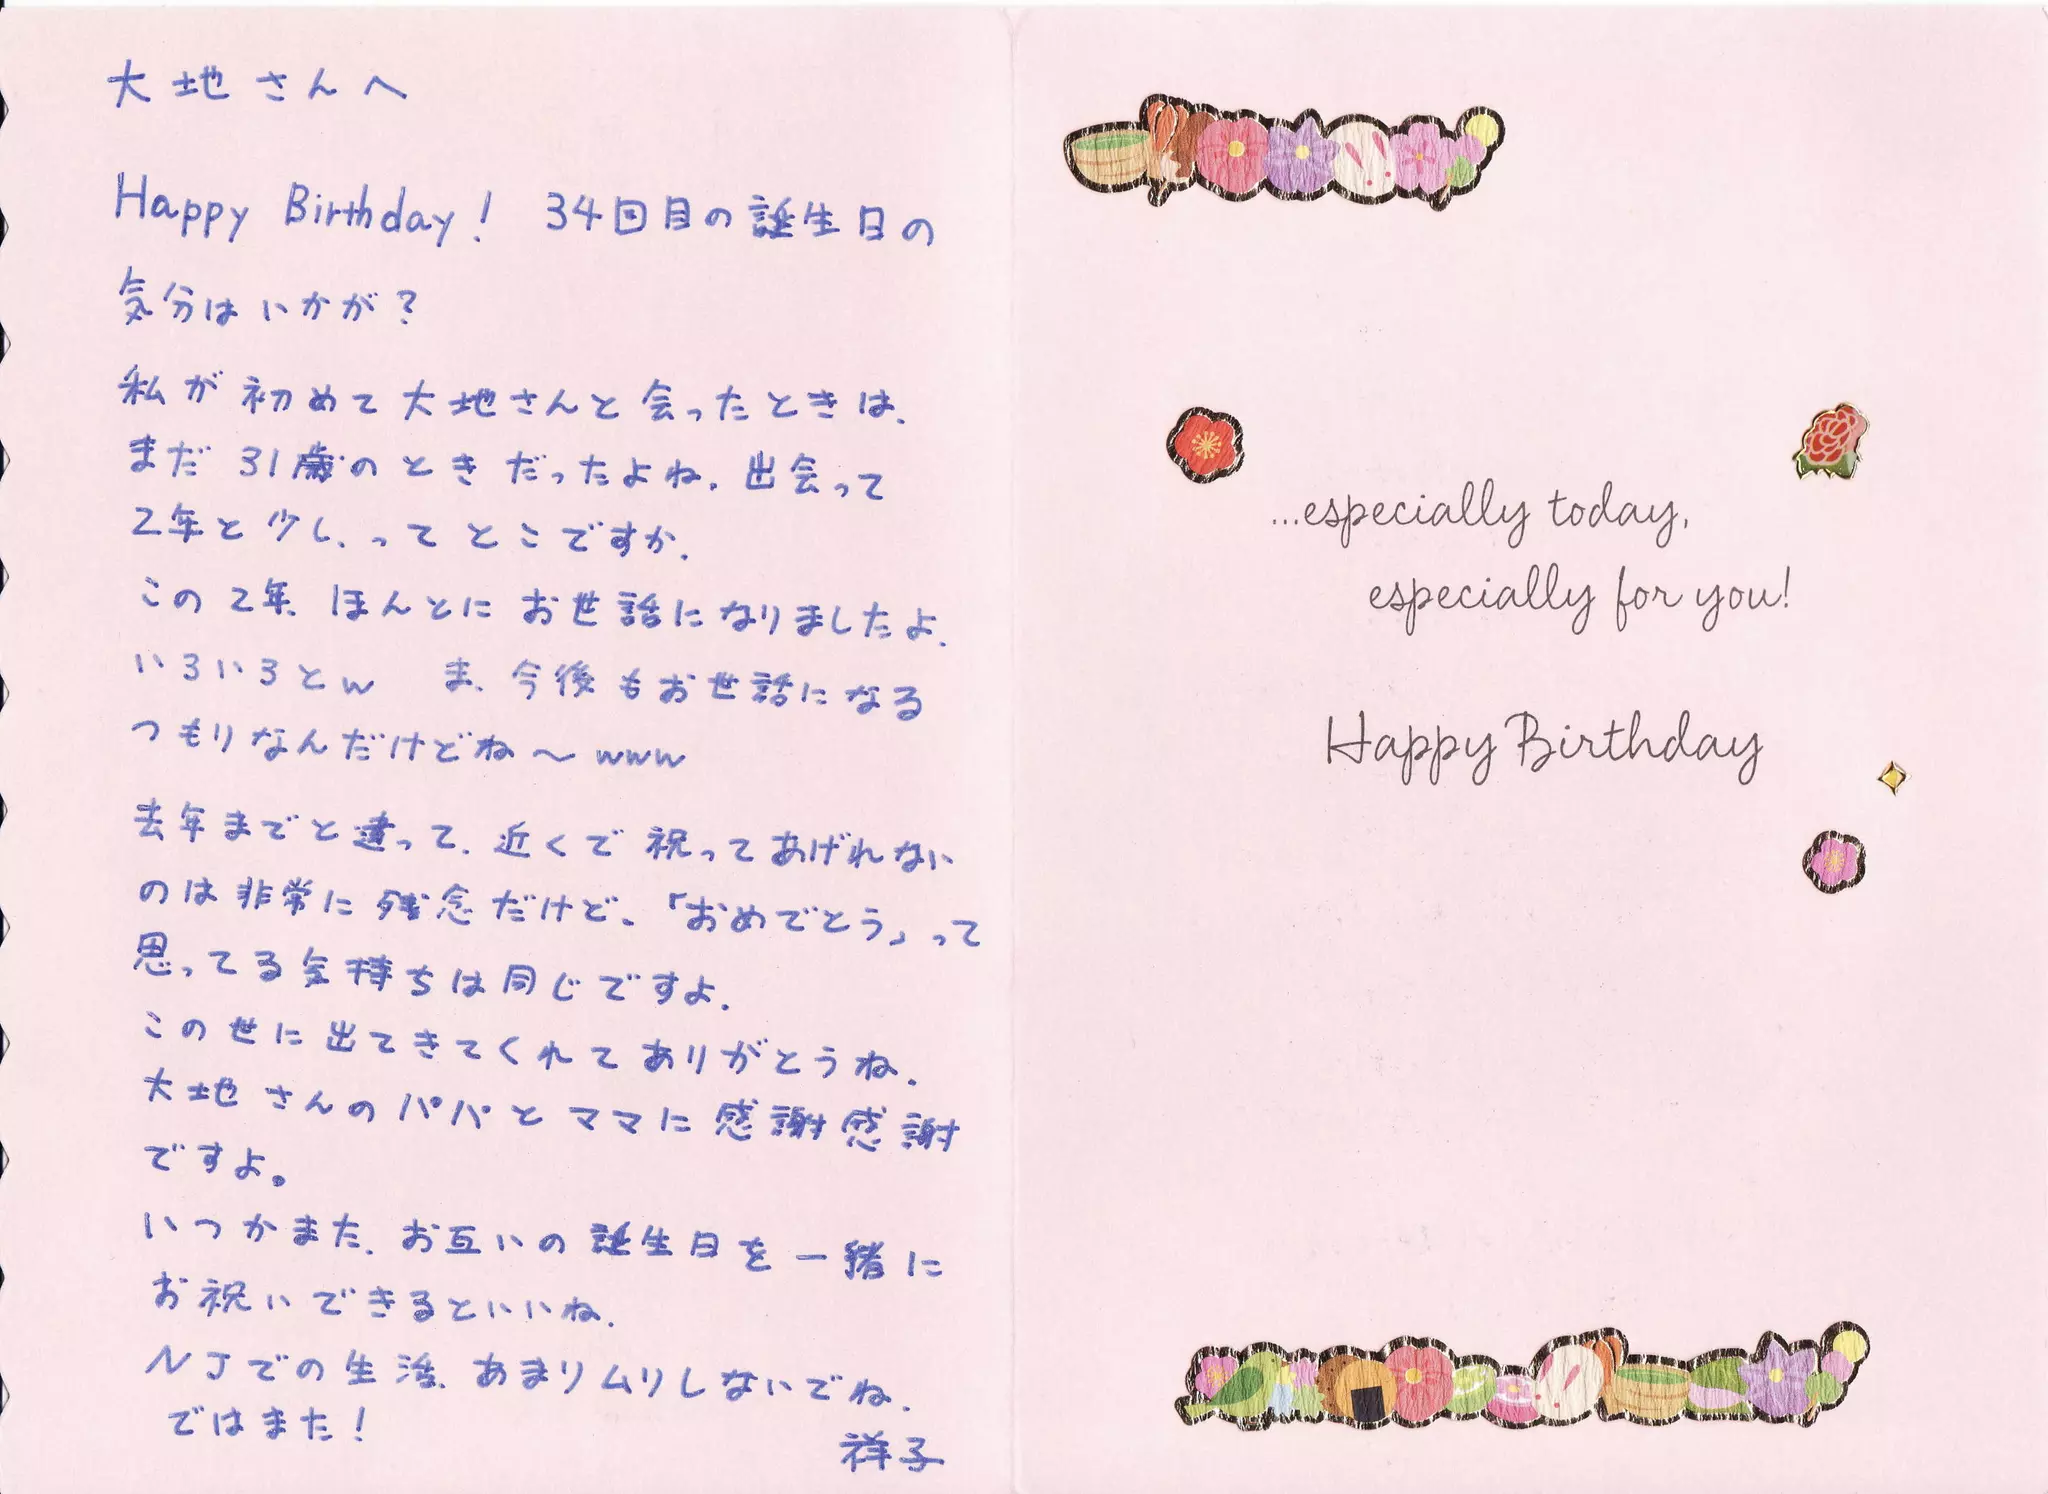 大地さんへ
Happy Birthday! 34回目の誕生日の
気分はいかが？
私が初めて大地さんと会ったときは、
まだ31歳のときだったよね。出会って
2年と少し、ってとこですか。
この2年、ほんとにお世話になりましたよ。
いろいろとw ま、今後もお世話になる
つもりなんだけどね〜www
去年までと違って、近くで祝ってあげれない
のは非常に残念だけど、「おめでとう」って
思ってる気持ちは同じですよ。
この世に出てきてくれてありがとうね。
大地さんのパパとママに感謝感謝
ですよ。
いつかまた、お互いの誕生日を一緒に
お祝いできるといいね。
NJでの生活、あまりムリしないでね。
ではまた！
祥子
...especially today,
especially for you!
Happy Birthday